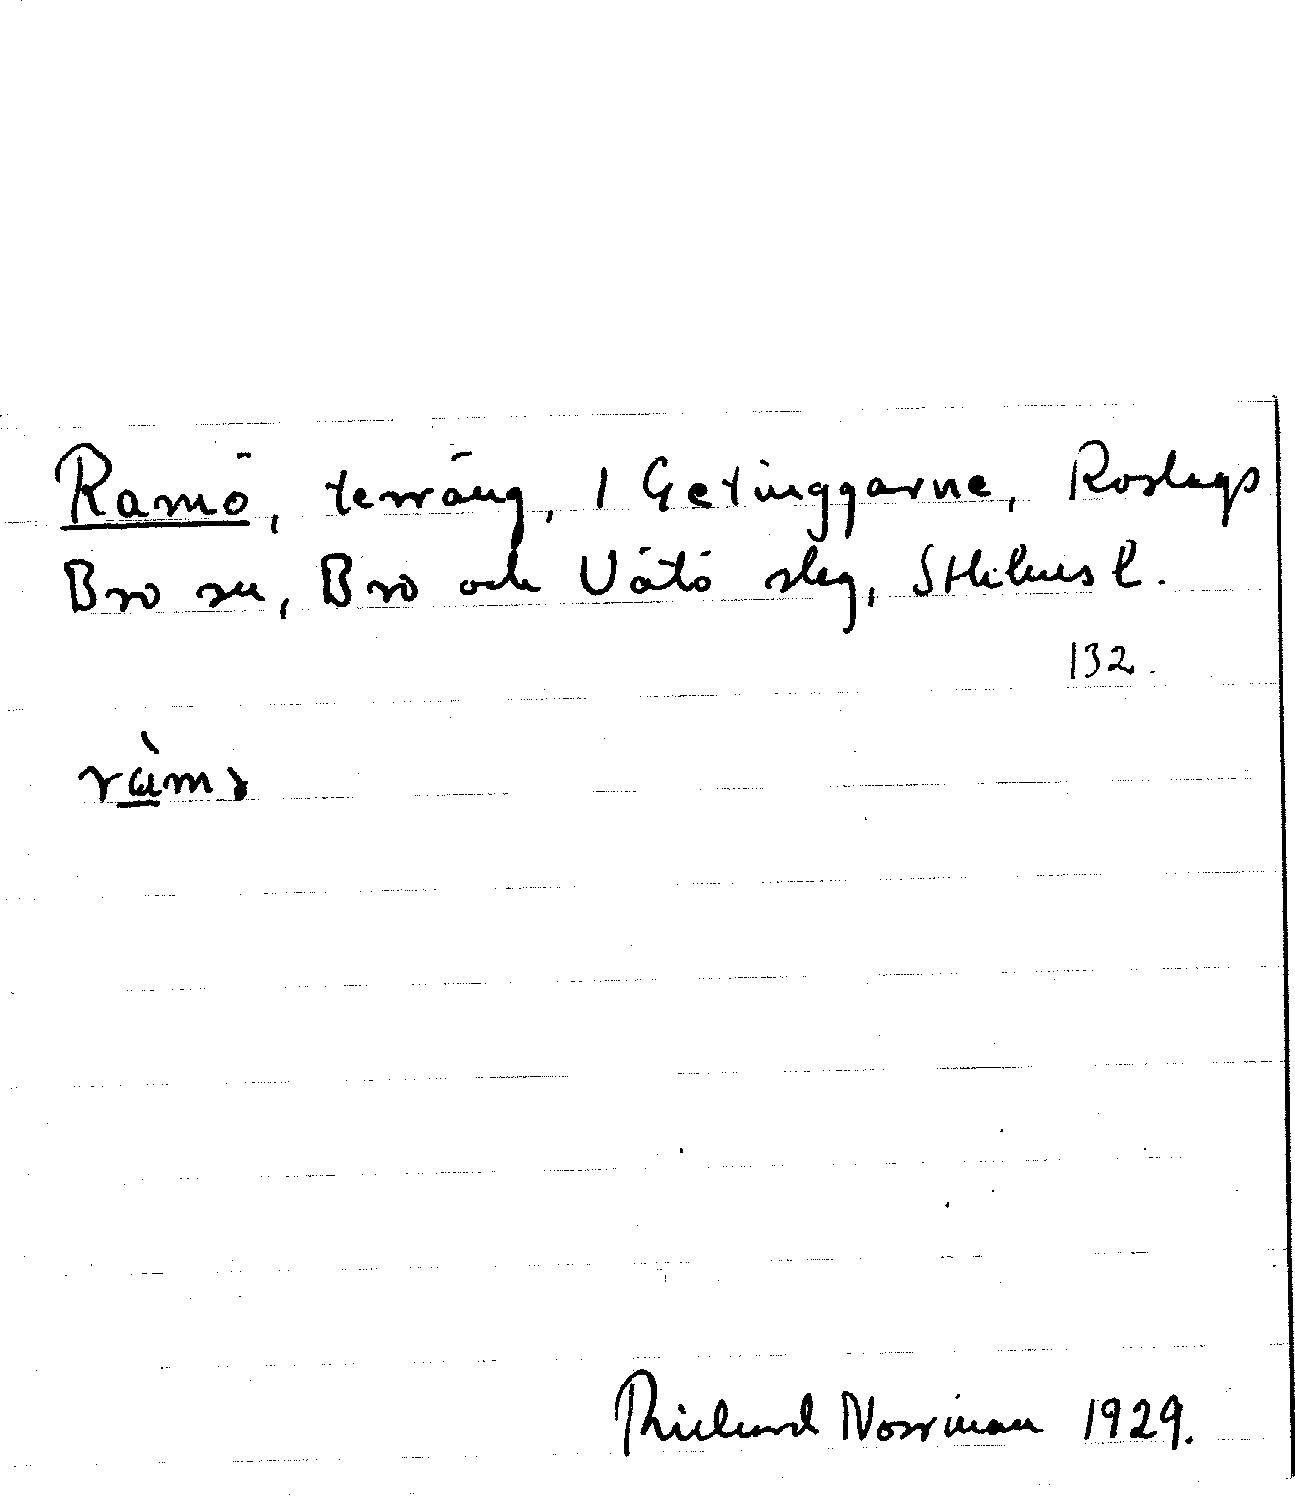 Ramö, terräng, 1 Getinggarne, Roslags
Bro sn, Bro och Vätö skg, Sthlms l.
132.
Richard Norrman 1929.